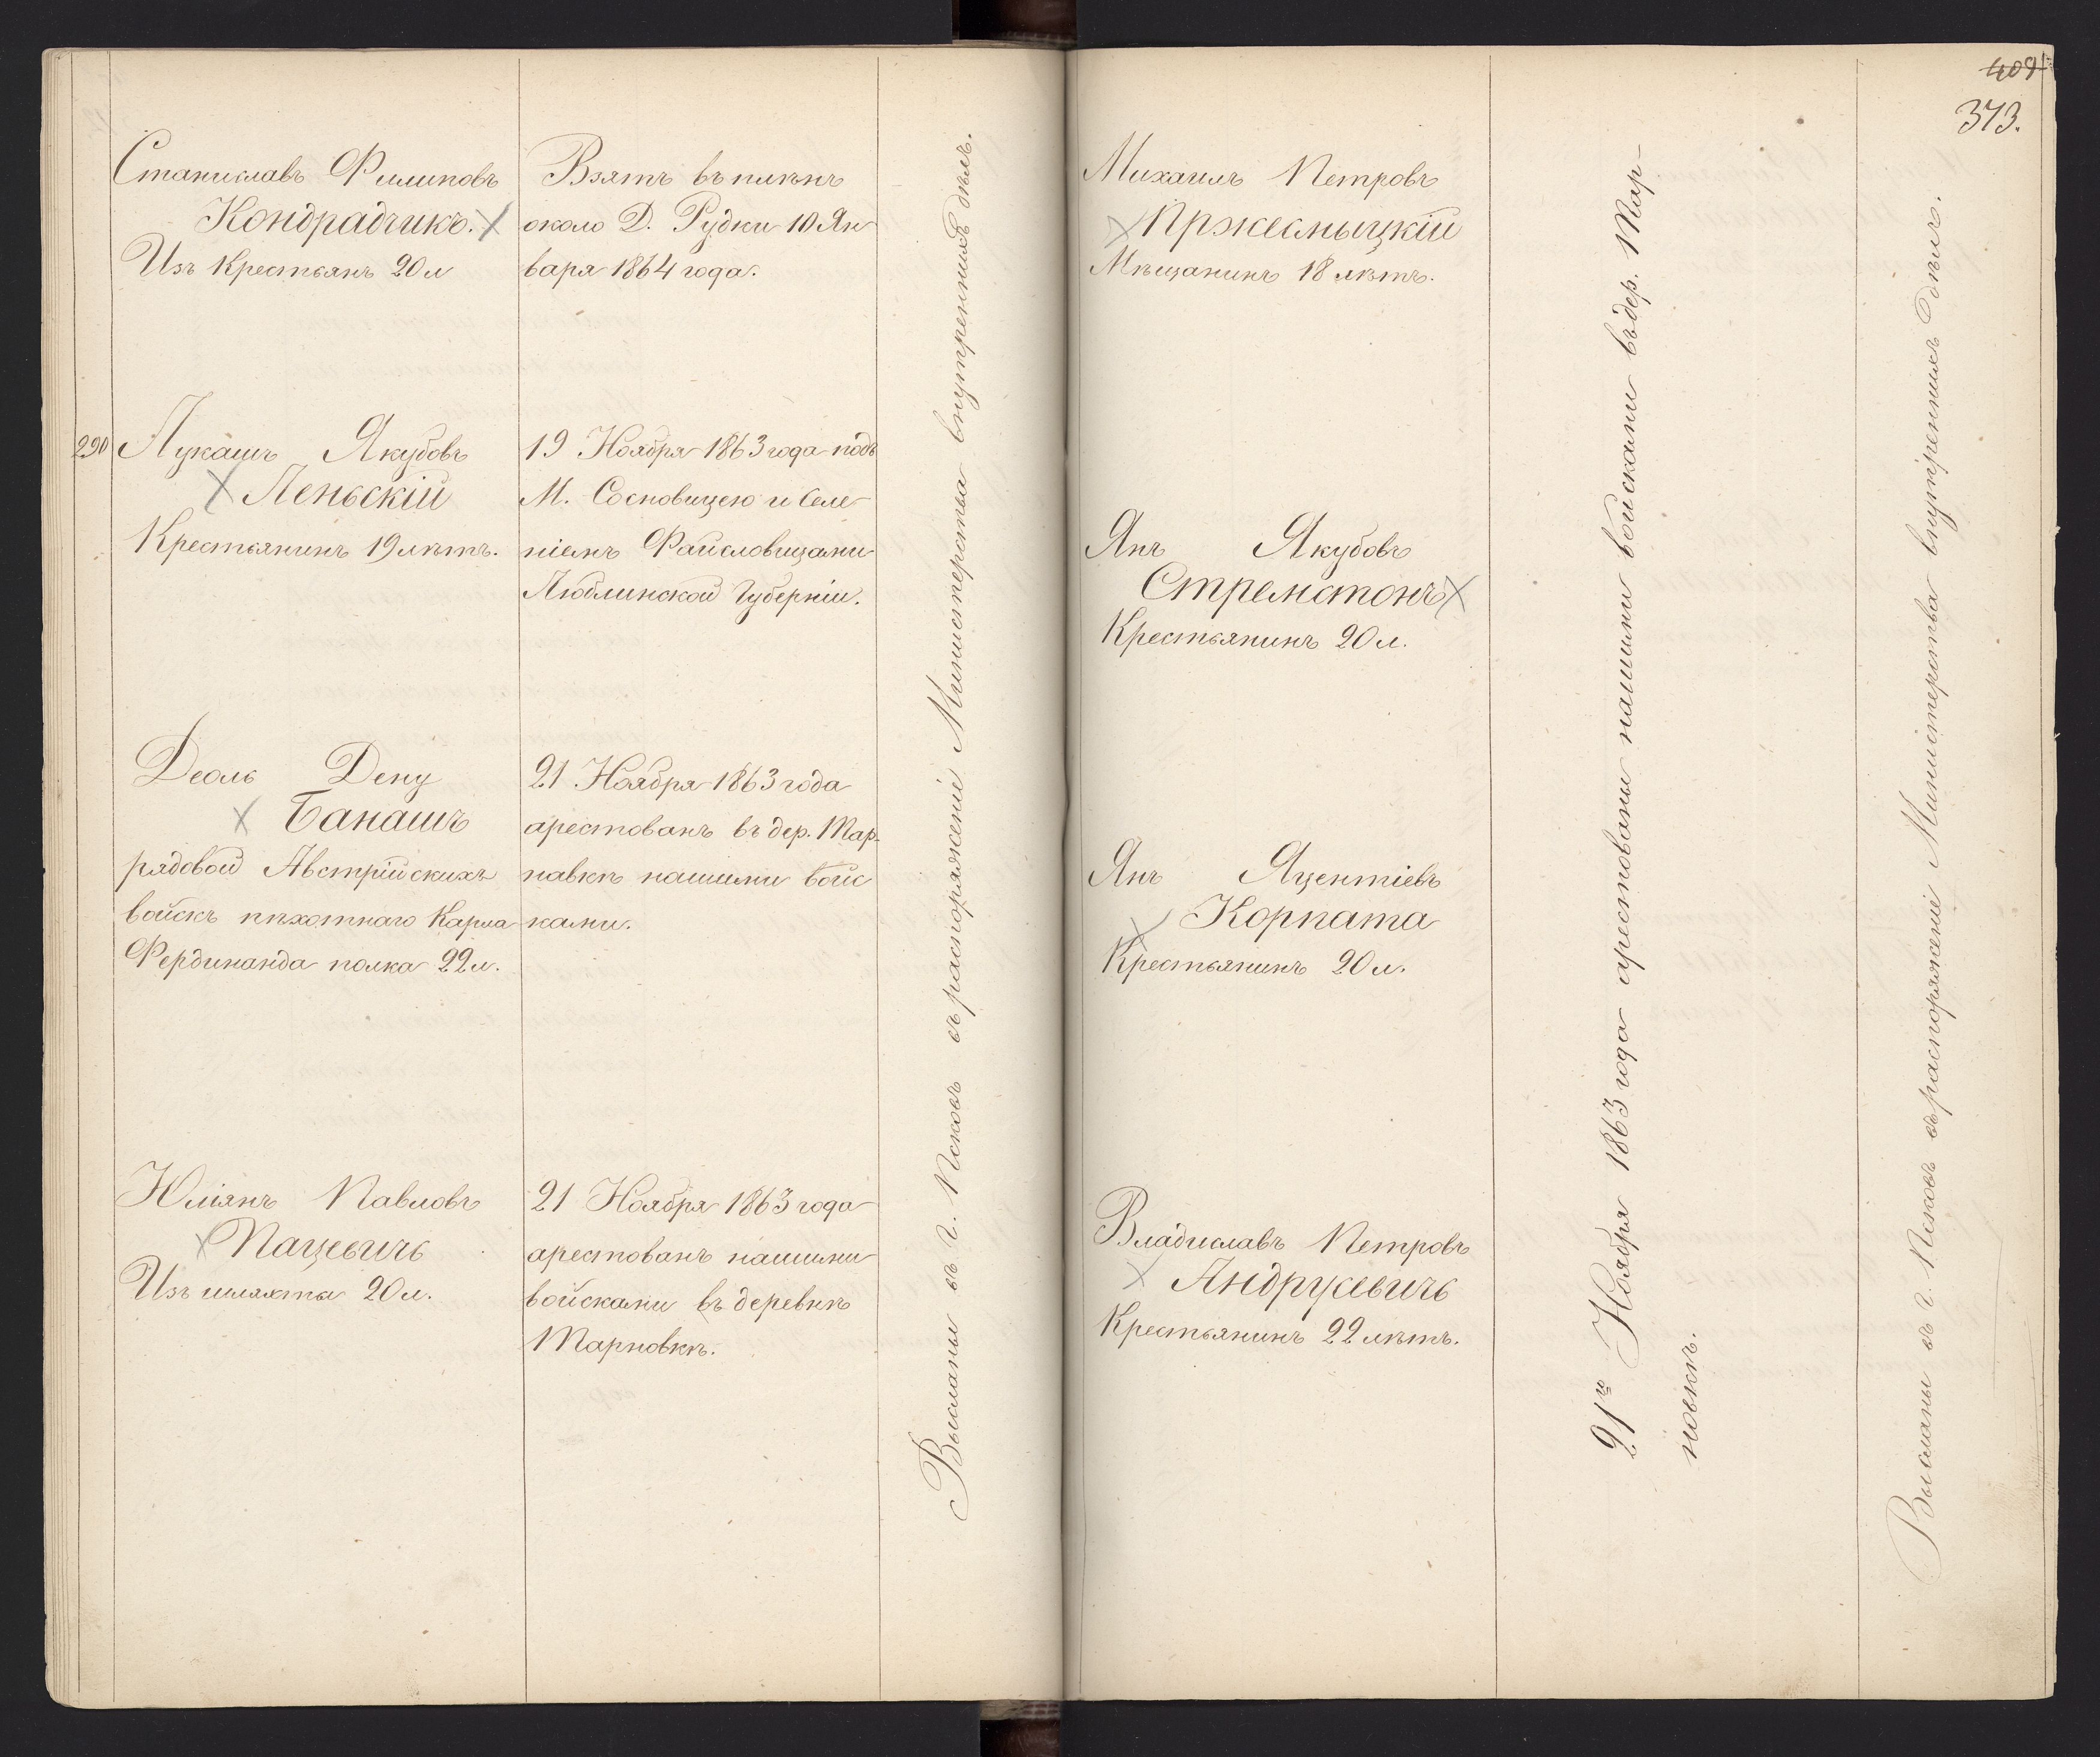 Станиславъ Филиповъ
Кондрадчикъ.
Изъ Крестьянъ 20 л
Взятъ въ плѣнъ
около Д. Рудки 10 Ян
варя 1864 года.
290
Лукашъ Якубовъ
Леньскій
Крестьянинъ 19 лѣтъ.
19 Ноября 1863 года подъ
М. Сосновицею и Селе
ніемъ Файсловицами
Люблинской Губерніи.
Деоль Дену
Банашъ
рядовой Австрійскихъ
войскъ пѣхотнаго Карла
Фердинанда полка 22 л.
21 Ноября 1863 года
арестованъ въ дер. Тар-
навкѣ нашими войс
ками.
Юліянъ Павловъ
Пацевичъ
Изъ шляхты 20 л.
21 Ноября 1863 года
арестованъ нашими
войсками въ деревнѣ
Тарновкѣ.
Высланы въ г. Псковъ въ распоряженіе Министерства внутреннихъ дѣлъ.
409
373.
Михаилъ Петровъ
Пржесмыцкій
Мѣщанинъ 18 лѣтъ.
Янъ Якубовъ
Стремстонъ
Крестьянинъ 20 л.
Янъ Яцентіевъ
Корпата
Крестьянинъ 20 л.
Владиславъ Петровъ
Андрусевичъ
Крестьянинъ 22 лѣтъ.
21го Ноября 1863 года арестованы нашими войсками въ дер. Тар-
новкѣ.
Высланы въ г. Псковъ въ распоряженіе Министерства внутреннихъ дѣлъ.